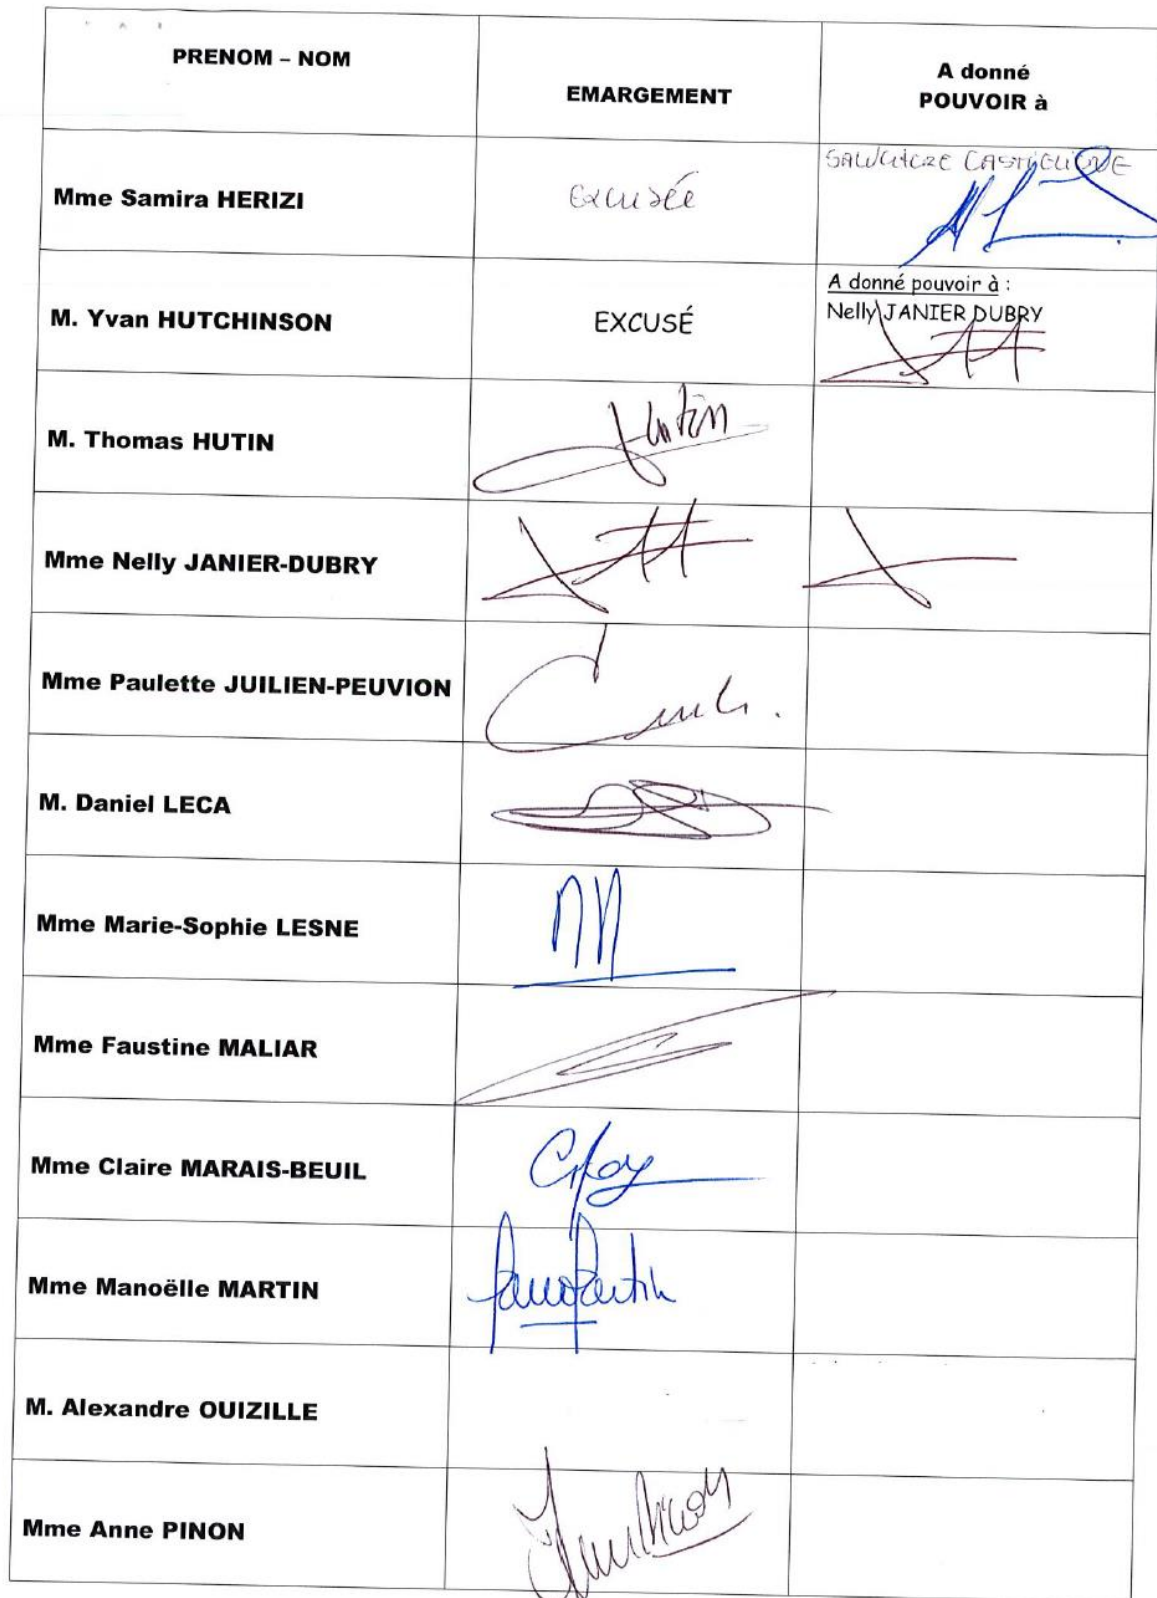 PRENOM – NOM
EMARGEMENT
A donné
POUVOIR à
Mme Samira HERIZI
Excusée
M. Yvan HUTCHINSON
EXCUSÉ
A donné pouvoir à :
Nelly JANIER DUBRY
M. Thomas HUTIN
Hutin
Mme Nelly JANIER-DUBRY
Mme Paulette JUILIEN-PEUVION
M. Daniel LECA
Mme Marie-Sophie LESNE
Mme Faustine MALIAR
Mme Claire MARAIS-BEUIL
Mme Manoëlle MARTIN
M. Alexandre OUIZILLE
Mme Anne PINON